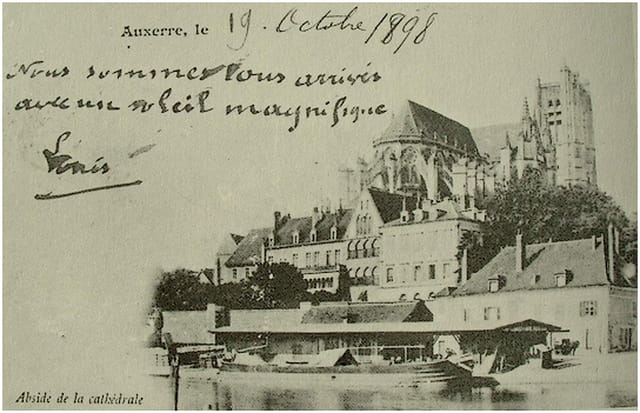 Auxerre, le 19. Octobre 1898
Nous sommes tous arrivés
avec un soleil magnifique
Louis
Abside de la cathédrale